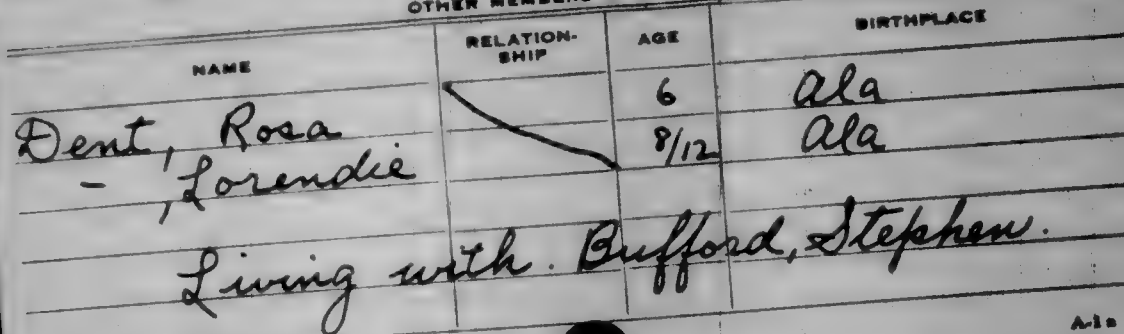 OTHER MEMBERS
NAME RELATION-SHIP AGE BIRTHPLACE
Dent, Rosa 6 Ala
- , Lorendie 8/12 Ala
Living with. Bufford, Stephen.